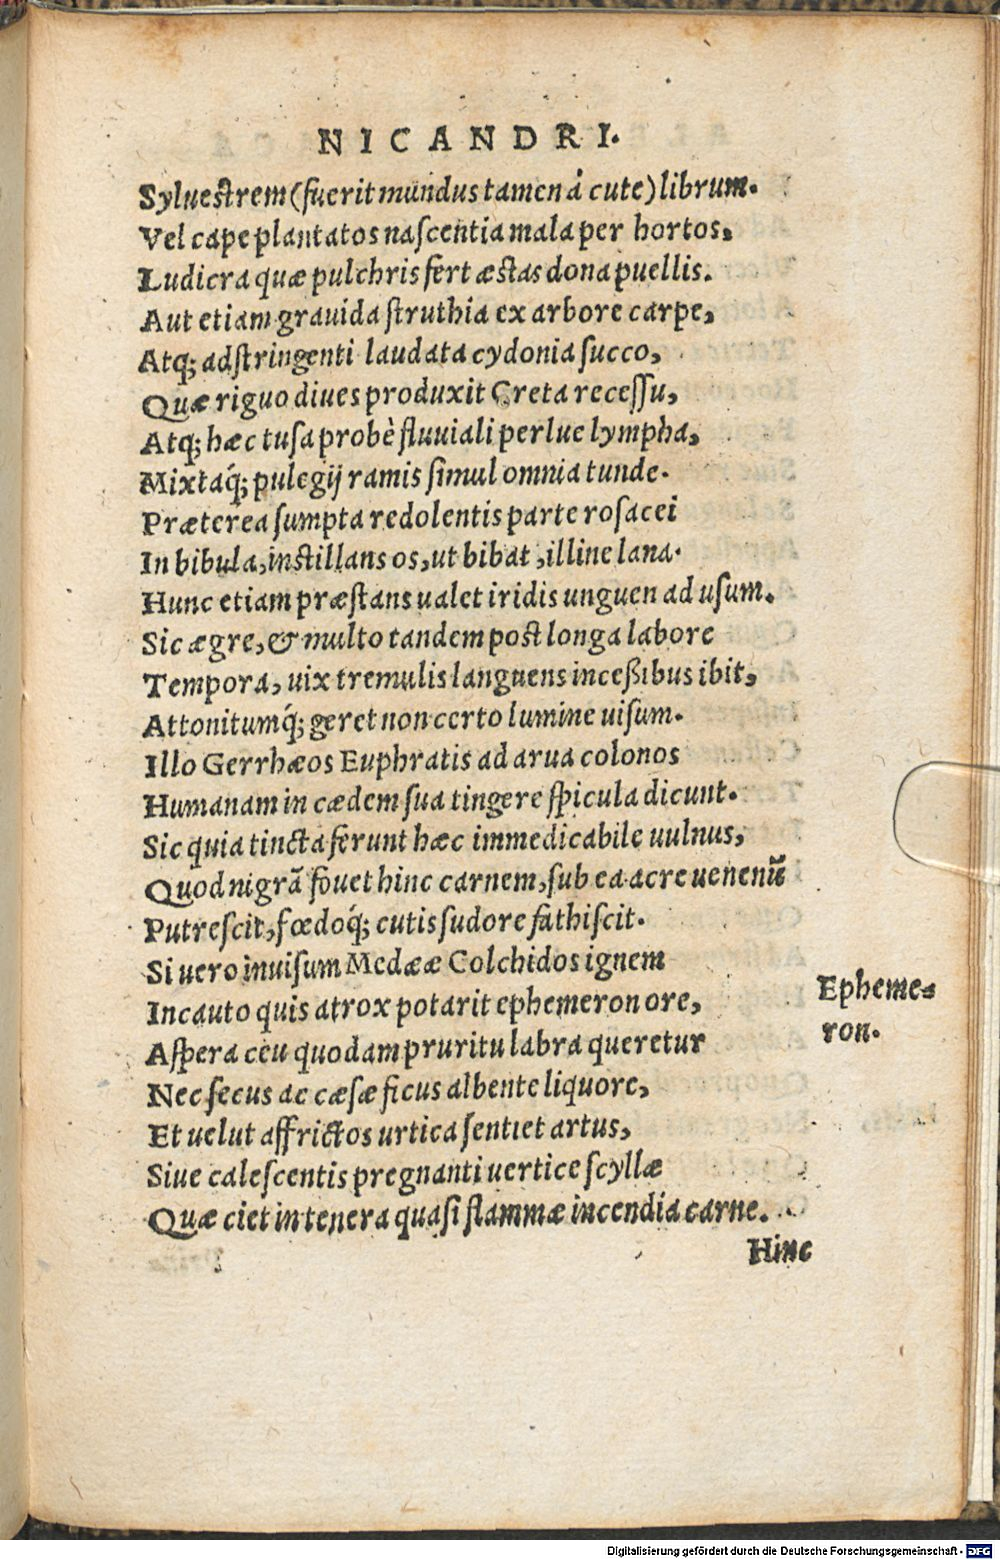 NICANDRI.
Syluestrem (fuerit mundus tamen à cute) librum.
Vel cape plantatos nascentia mala per hortos,
Ludicra quæ pulchris fert æstas dona puellis.
Aut etiam grauida struthia ex arbore carpe,
Atq; adstringenti laudata cydonia succo,
Quæ riguo diues produxit Creta recessu,
Atq; hæc tusa probè fluuiali perlue lympha,
Mixtaq́; pulegij ramis simul omnia tunde.
Præterea sumpta redolentis parte rosacei
In bibula, instillans os, ut bibat, illine lana.
Hunc etiam præstans ualet iridis unguen ad usum.
Sic ægre, & multo tandem post longa labore
Tempora, uix tremulis languens inceßibus ibit,
Attonitumq́; geret non certo lumine uisum.
Illo Gerrhæos Euphratis ad arua colonos
Humanam in cædem sua tingere spicula dicunt.
Sic quia tincta ferunt hæc immedicabile uulnus,
Quod nigrā fouet hinc carnem, sub ea acre uenenū
Putrescit, fœdoq́; cutis sudore fathiscit.
Si uero inuisum Medææ Colchidos ignem
Incauto quis atrox potarit ephemeron ore,
Aspera ceu quodam pruritu labra queretur
Nec secus ac cæsæ ficus albente liquore,
Et uelut affrictos urtica sentiet artus,
Siue calescentis pregnanti uertice scyllæ
Quæ ciet in tenera quasi flammæ incendia carne.
Hinc
Epheme=
ron.
Digitalisierung gefördert durch die Deutsche Forschungsgemeinschaft - DFG